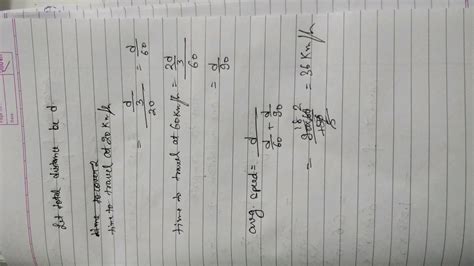 let total distance be d
time to cover 2
time to travel at 20 km/h
= d/3 / 20 = d/60
time to travel at 60km/h = 2d/3 / 60
= d/90
avg. speed = d / (d/60 + d/90)
= = 36 km/h